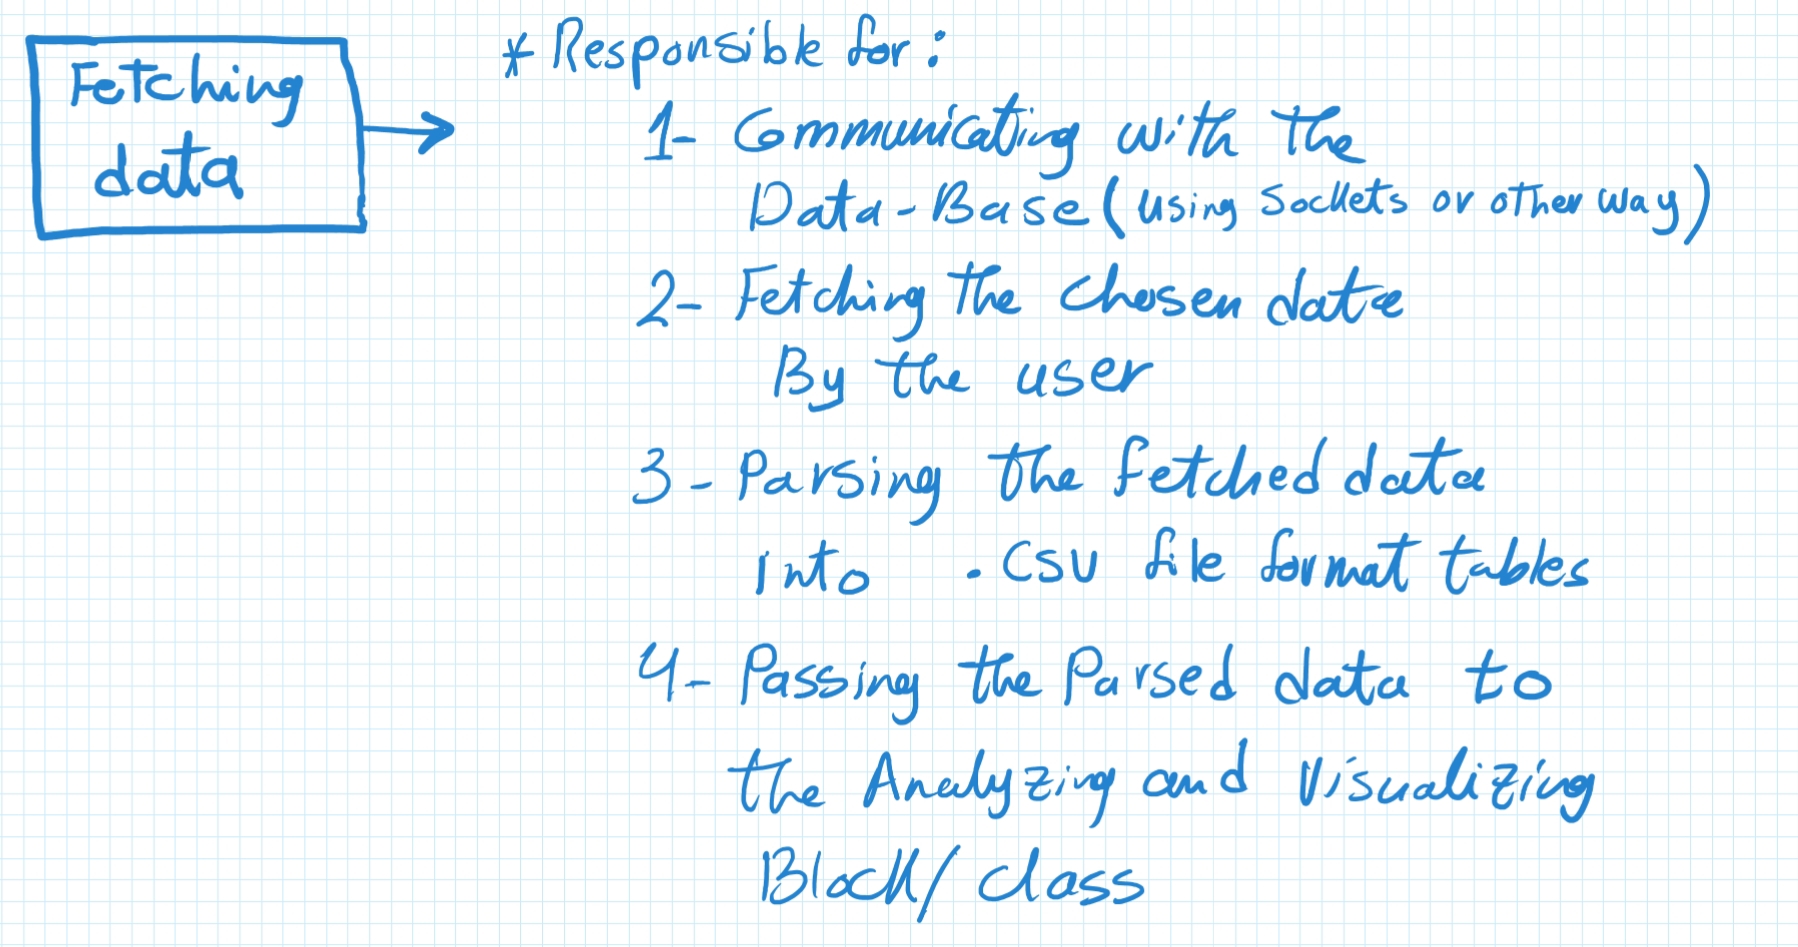 Fetching
data
* Responsible for:
1- Communicating with the
Data-Base (using Sockets or other way)
2- Fetching the chosen data
By the user
3- Parsing the fetched data
into .CSV file format tables
4- Passing the Parsed data to
the Analyzing and Visualizing
Block/class